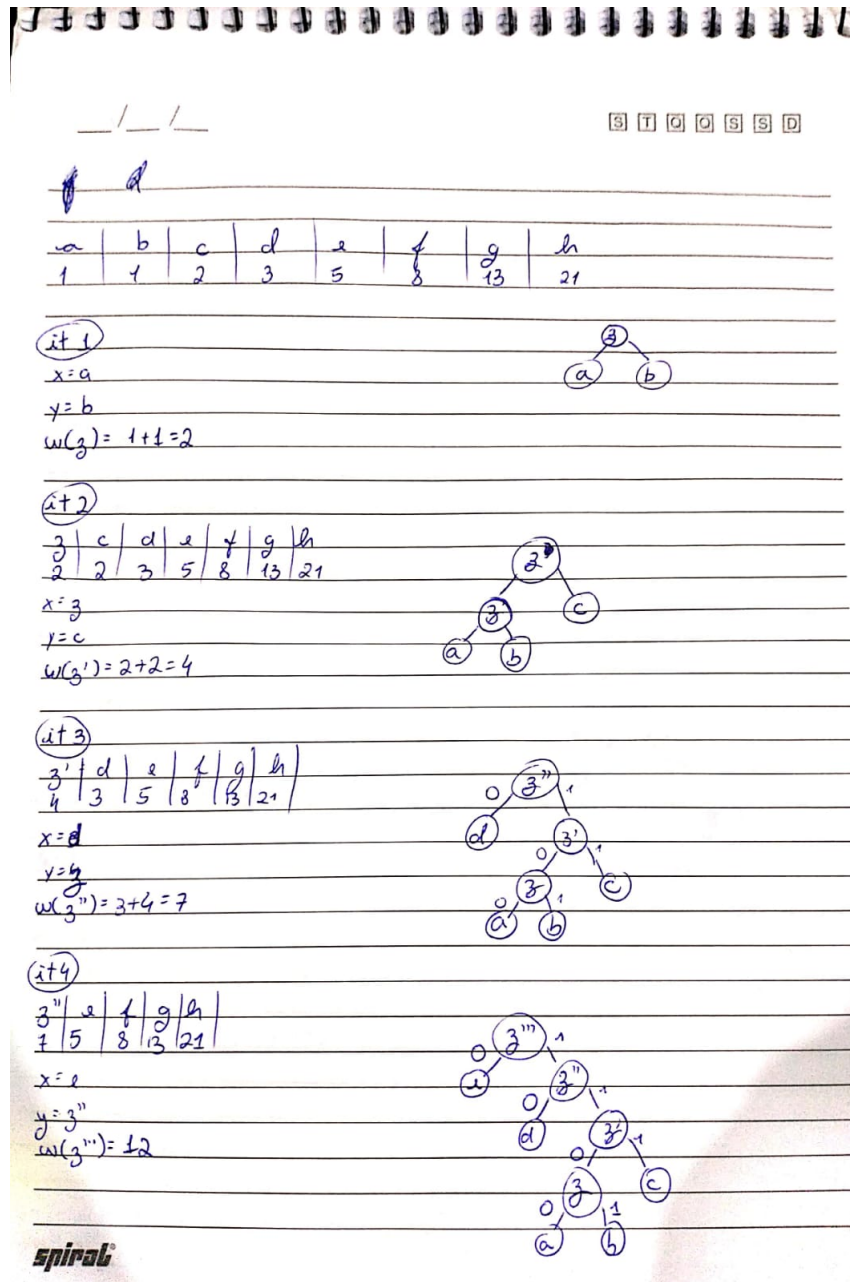 __/__/__
S T Q Q S S D
d
a b c d e f g h
1 1 2 3 5 8 13 21
it 1
x=a
y=b
w(z)= 1+1=2
z
a b
it 2
z c d e f g h
2 2 3 5 8 13 21
x=z
y=c
w(z')=2+2=4
z'
z c
a b
it 3
z' d e f g h
4 3 5 8 13 21
x=d
y=z
w(z")=3+4=7
0 z" 1
d z'
0 1
z c
0 1
a b
it4
z" e f g h
7 5 8 13 21
x=e
y=z"
w(z''')=12
0 z''' 1
e z"
0 1
d z'
0 1
z c
0 1
a b
spiral